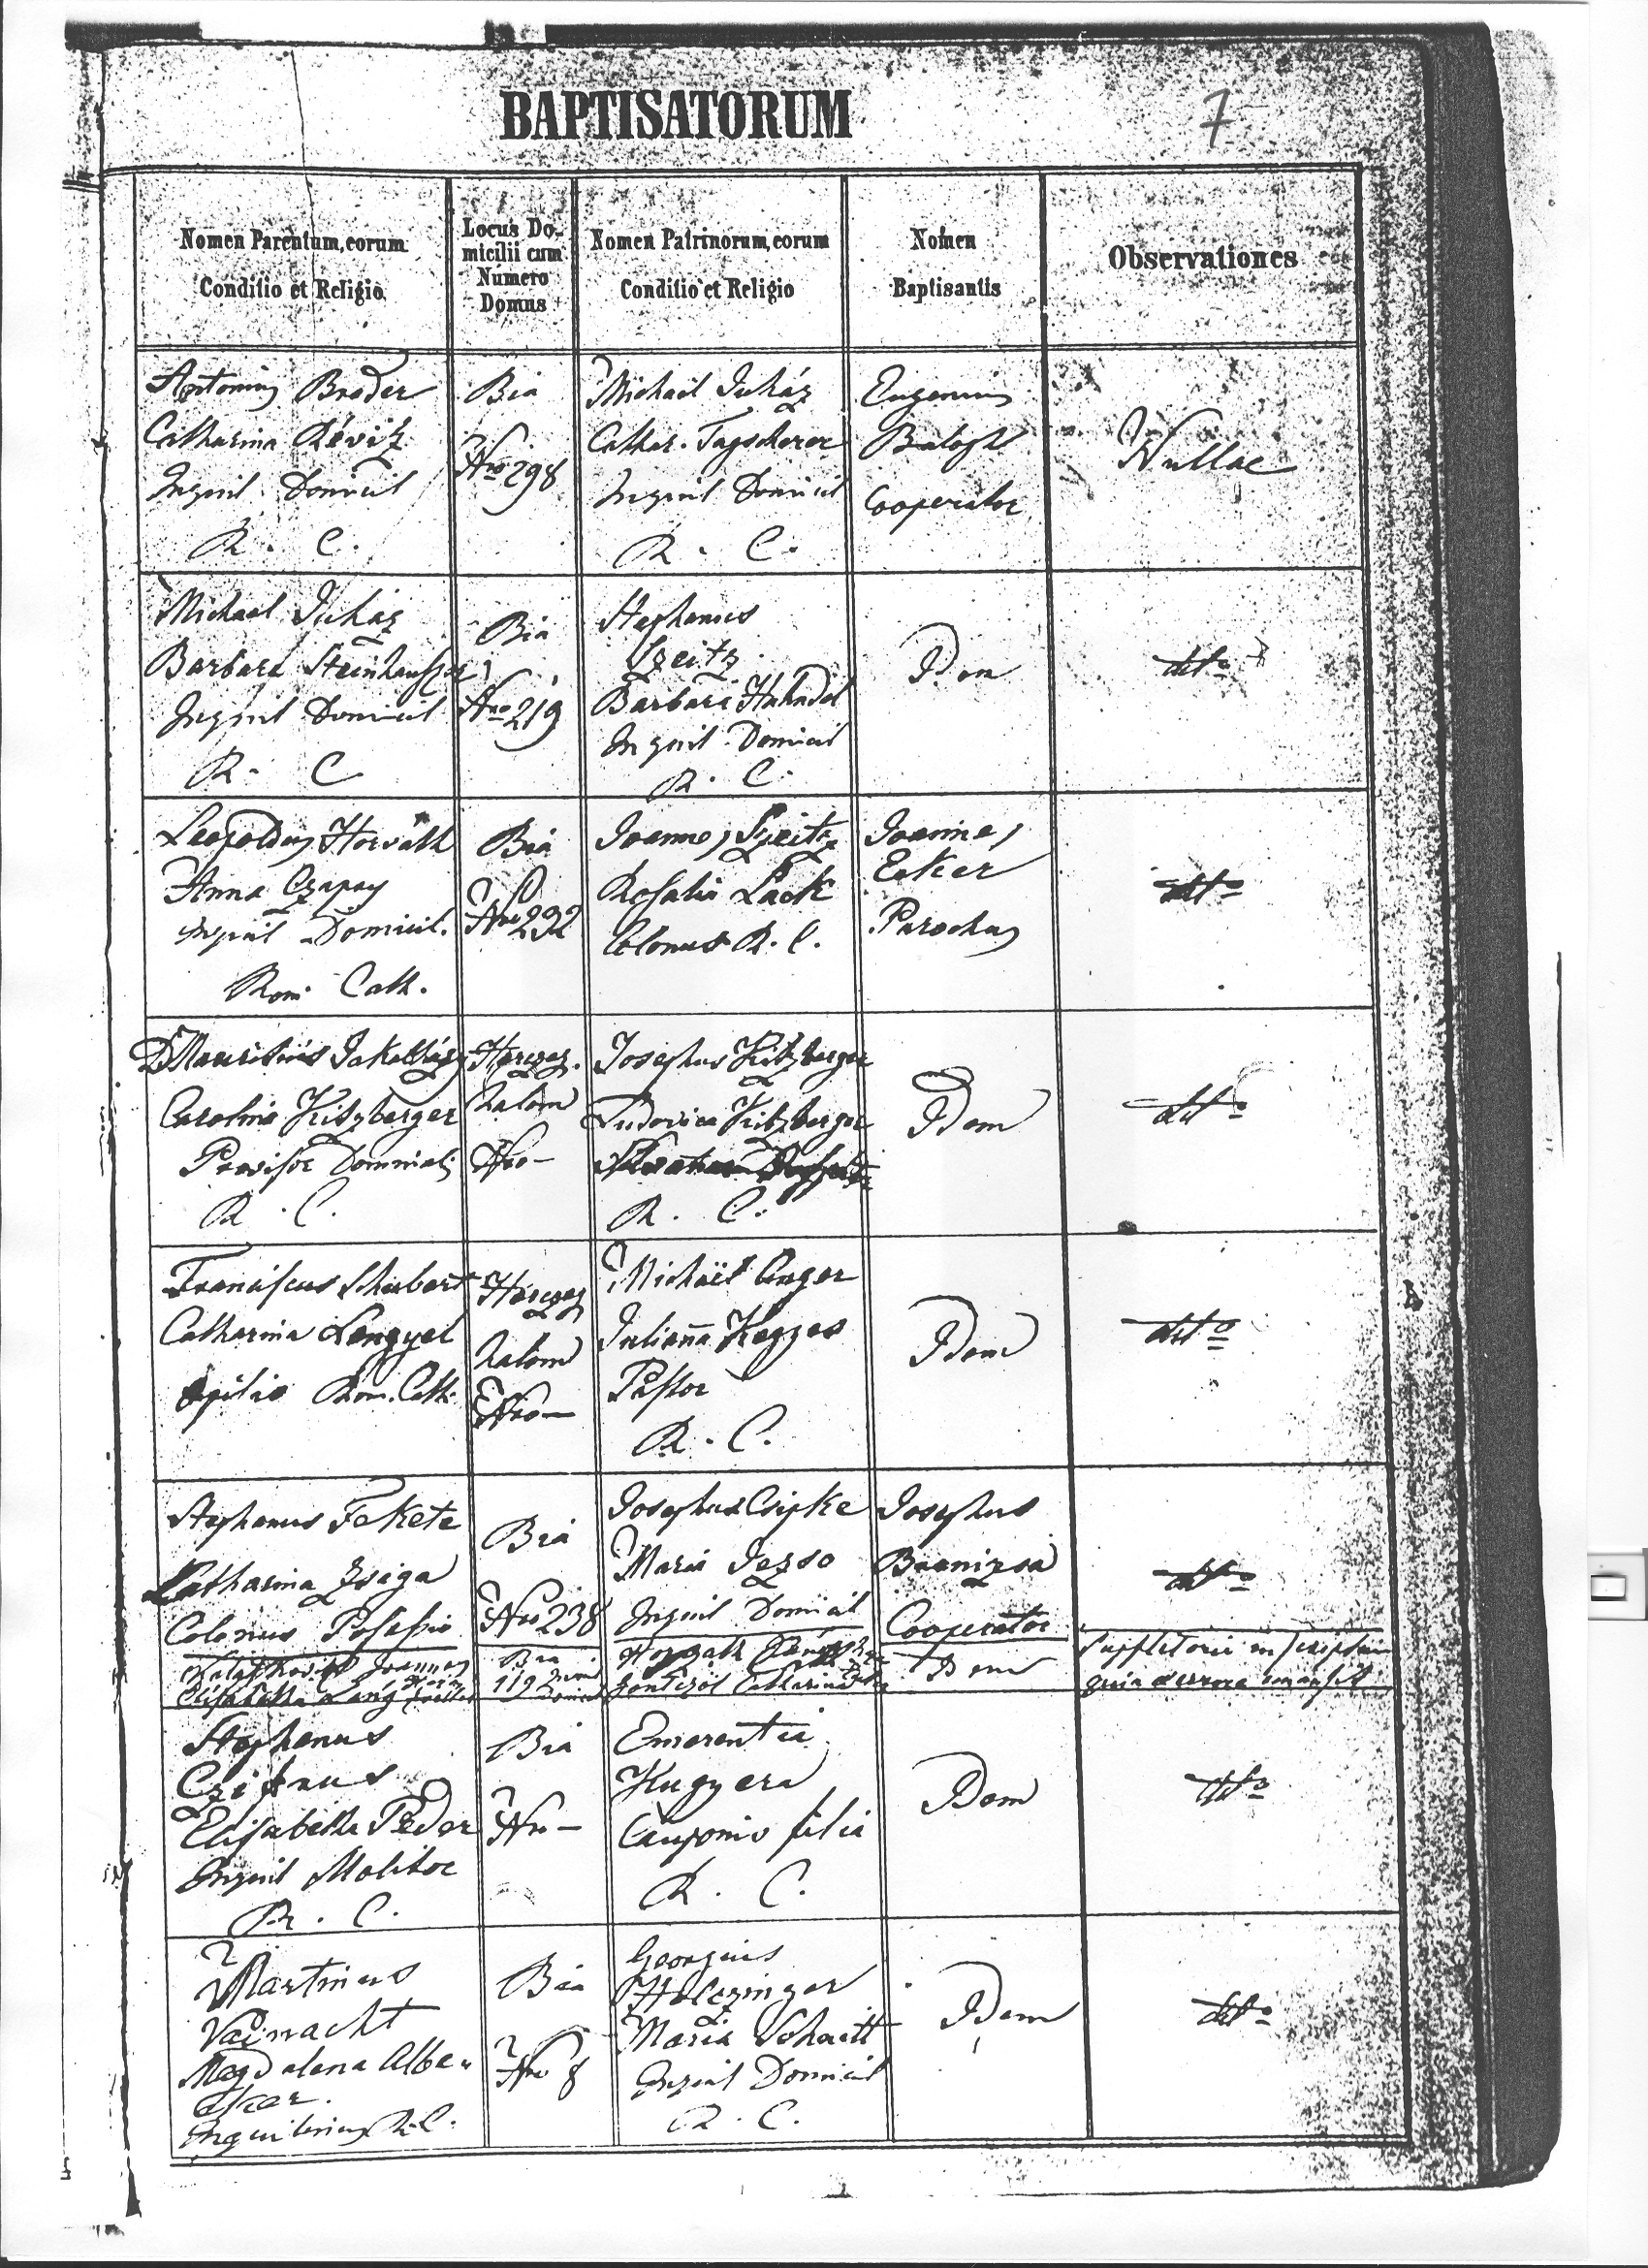 BAPTISATORUM
7
Nomen Parentum, eorum
Conditio et Religio
Locus Do-
micilii cum
Numero
Domus
Nomen Patrinorum, eorum
Conditio et Religio
Nomen
Baptisantis
Observationes
Antonius Broder
Catharina Révitz
Inquil Domicil
R. C.
Bia
Nro 298
Michael Juház
Cathar. Tagscherer
Inquil Domicil
R. C.
Eugenius
Balogh
Cooperator
Nullae
Michael Juház
Barbara Steinhauszer
Inquil Domicil
R. C
Bia
Nro 219
Stephanus
Szeitz
Barbara Hahndel
Inquil Domicil
R. C.
Idem
detto
Leopoldus Horváth
Anna Czapay
Inquil Domicil.
Rom Cath.
Bia
Nro 292
Joannes Szeitz
Rosalia Lack
Colonus R. C.
Joannes
Eker
Parochus
detto
D Mauritius Jakabházy
Carolina Kitzberger
Provisor Dominalis
R. C.
Herczeg
halom
Nro -
Josephus Kitzberger
Ludovica Kitzberger
R. C.
Idem
detto
Franciscus Schubert
Catharina Lengyel
Opilio Rom. Cath.
Herczeg
halom
Nro -
Michaël Unger
Julianna Kegyes
Pastor
R. C.
Idem
detto
Stephanus Fekete
Catharina Zsiga
Colonus
Bia
Nro 238
Josephus Csipke
Maria Jezso
Inquil Domicil
Josephus
Cooperator
detto
Joannes
Elisabetha Láng
Bia
119
Catharina
Idem
Suppletorie inscriptum
quia errore remansit
Stephanus
Elisabetha Péder
Inquil Molitor
R. C.
Bia
Nro -
Emerentia
Kugyera
Cauponis filia
R. C.
Idem
detto
Martinus
Vainacht
Magdalena Albe-
cker.
Inquilinus R. C.
Bia
Nro 8
Georgius
Holczinger
Maria Schaitt
Inquil Domicil
R. C.
Idem
detto